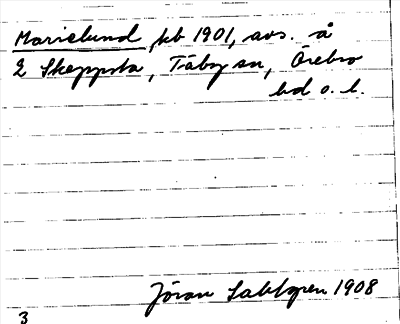 Marielund, fst 1901, avs. å
2 Skeppsta, Täby sn, Örebro
hd o. l.
Jöran Sahlgren 1908
3